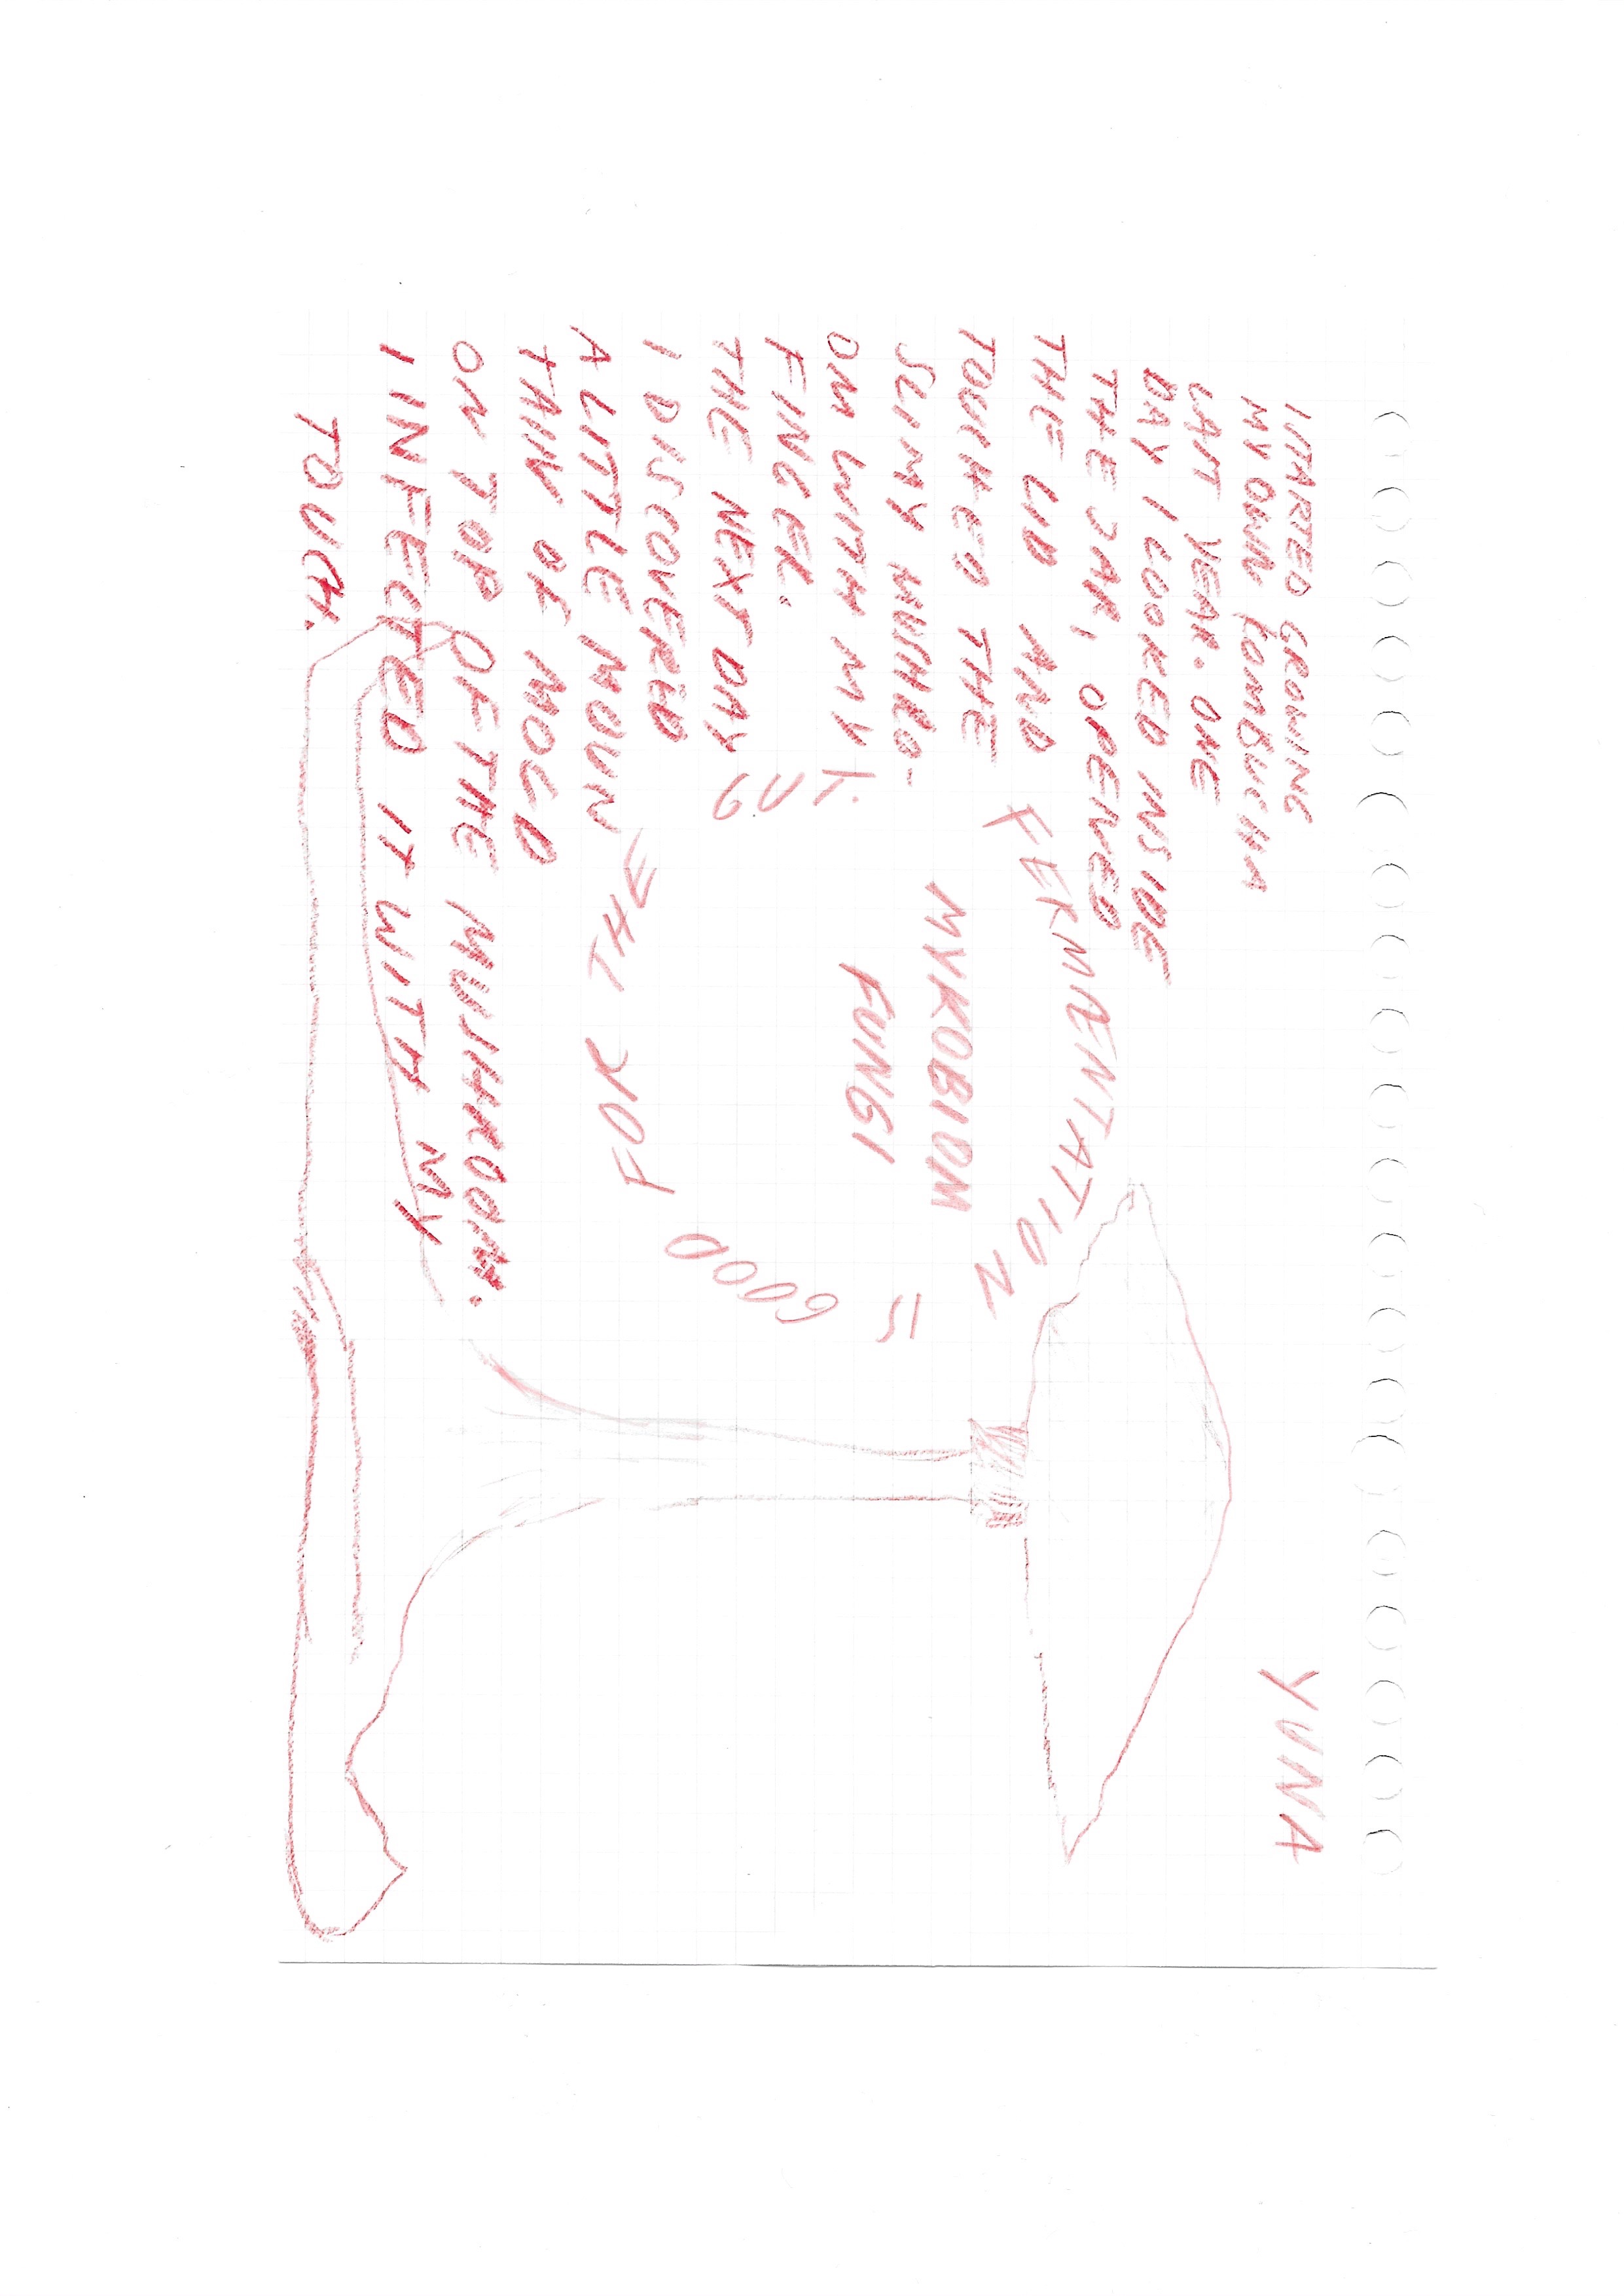 YUNA
I STARTED GROWING
MY OWN KOMBUCHA
LAST YEAR. ONE
DAY I LOOKED INSIDE
THE JAR, OPENED
THE LID AND
TOUCHED THE
SLIMY MUSHRO-
OM WITH MY
FINGER.
THE NEXT DAY
I DISCOVERED
A LITTLE MOUN
TAIN OF MOLD
ON TOP OF THE MUSHROOM.
I INFECTED IT WITH MY
TOUCH.
FERMENTATION IS GOOD FOR THE GUT
MYKOBIOM
FUNGI